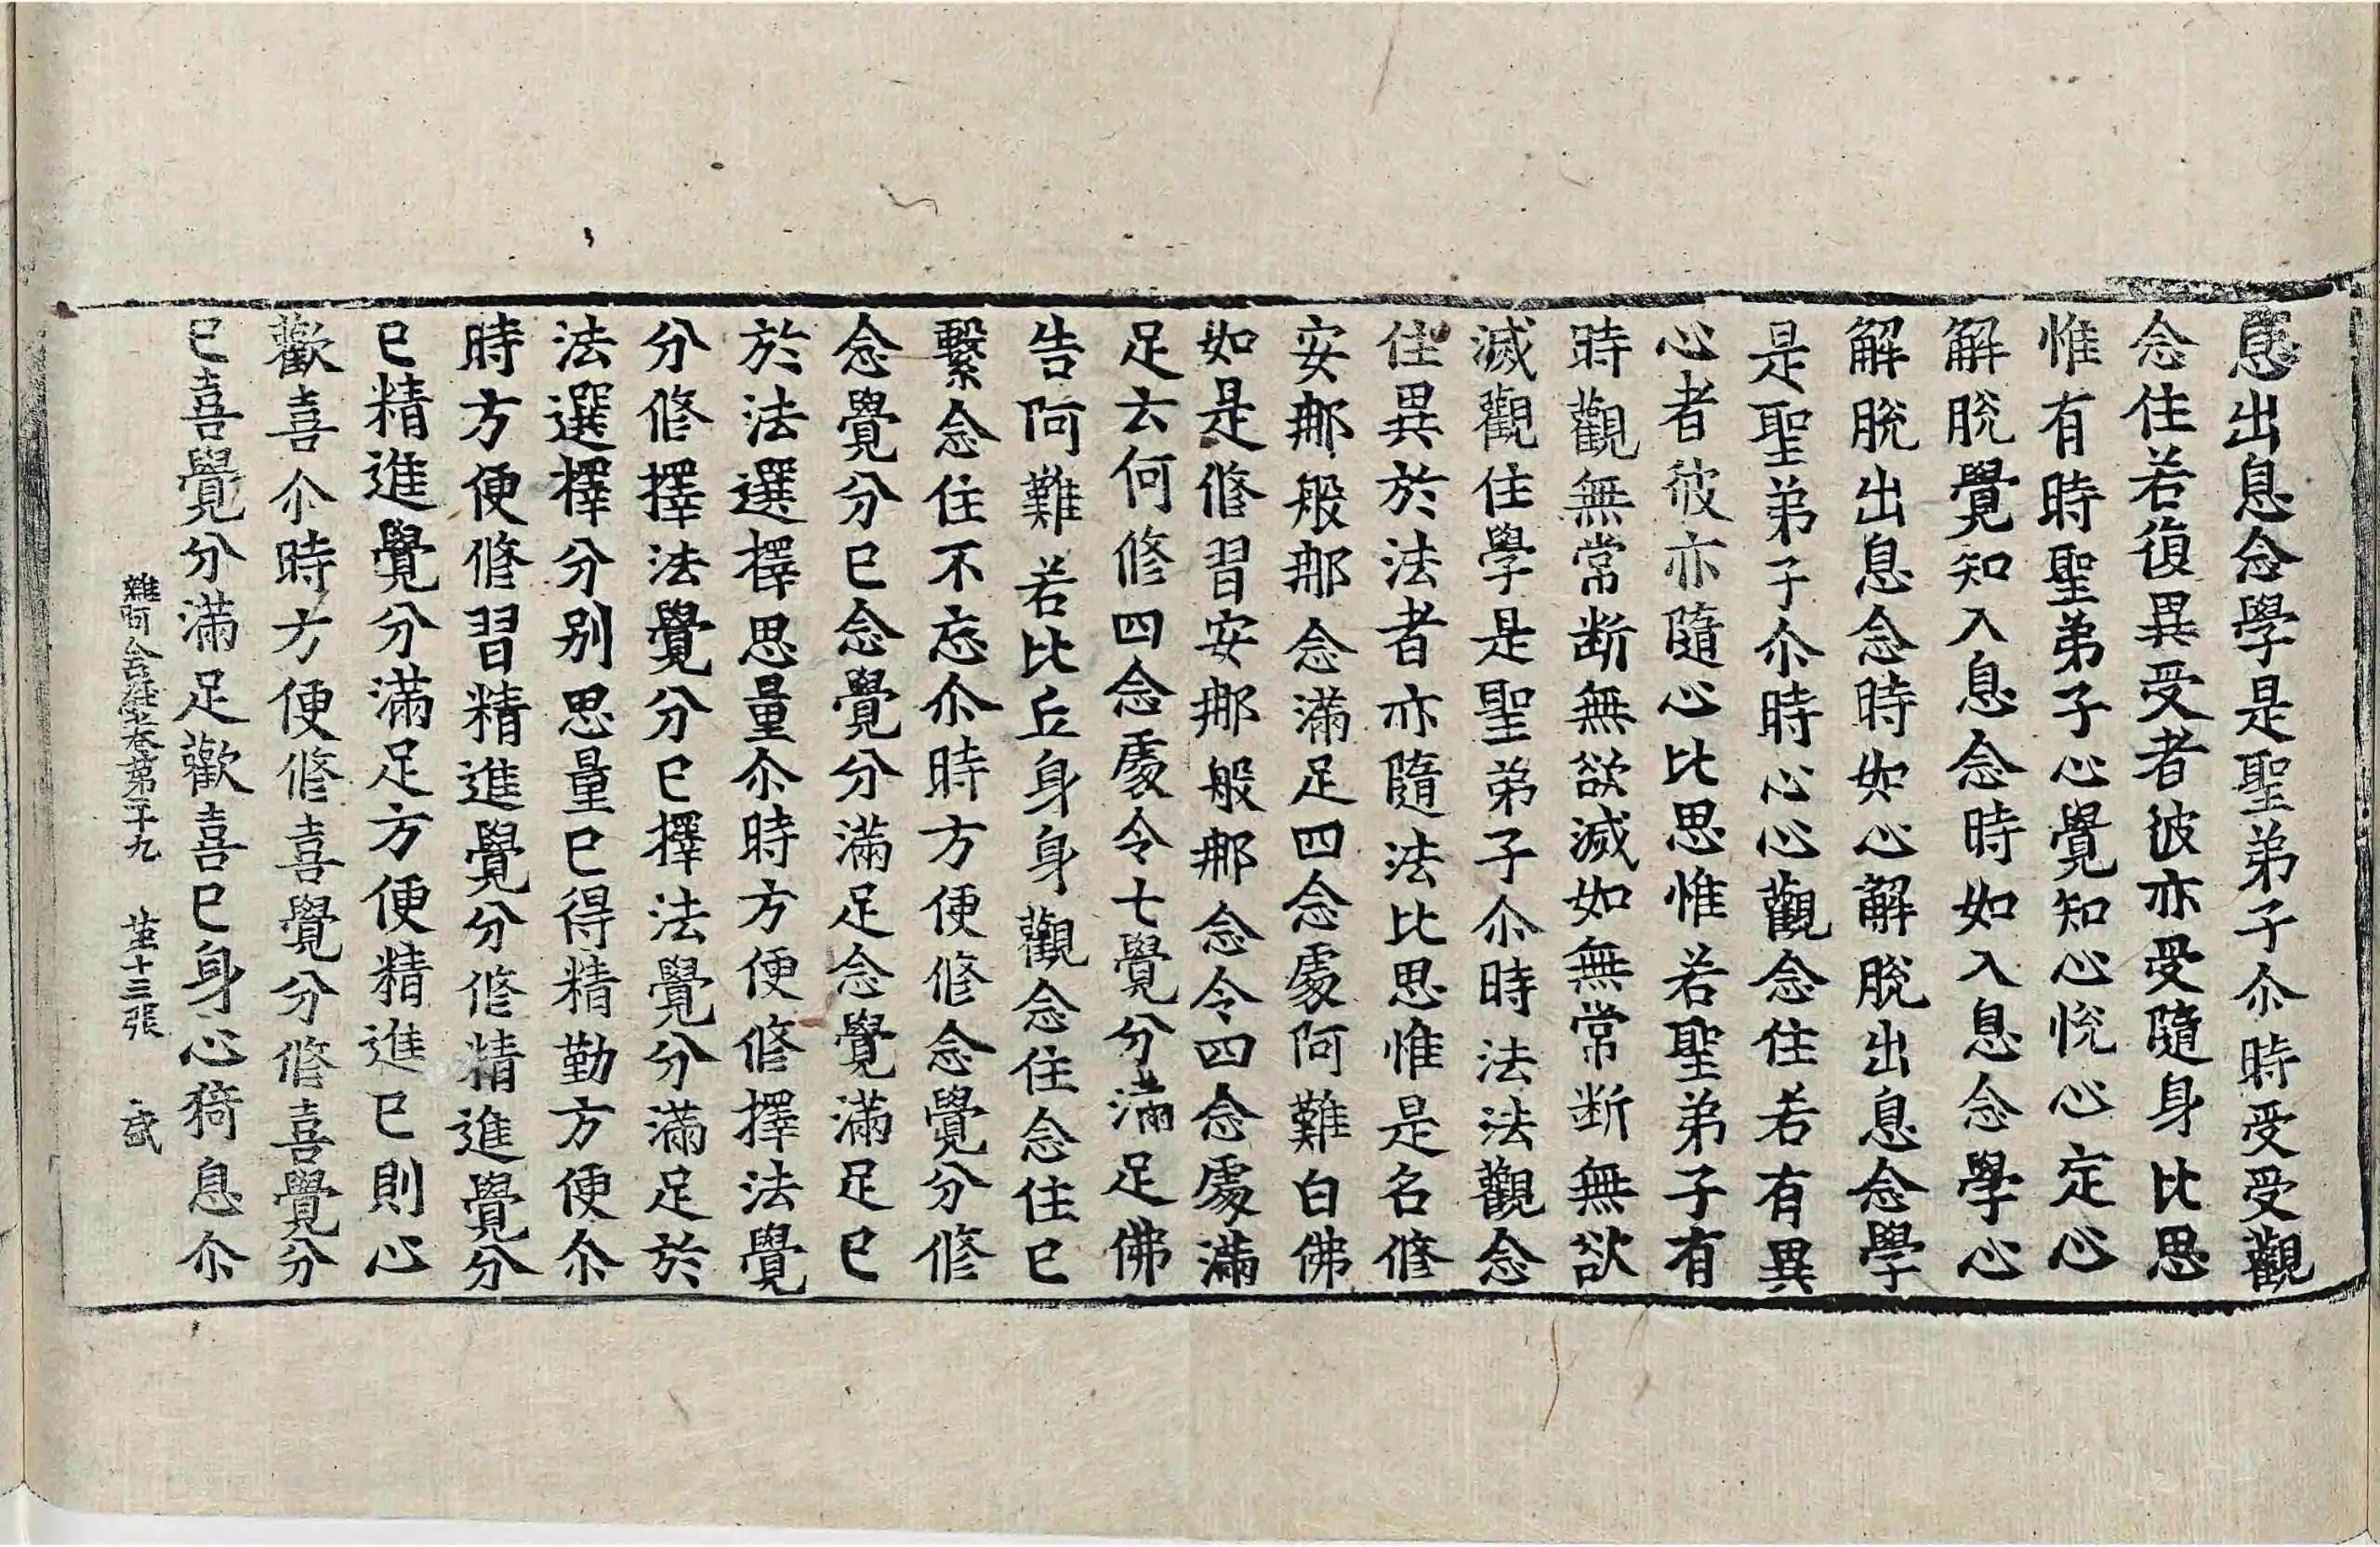 息出息念學是聖弟子尒時受受觀
念住若復異受者彼亦受隨身比思
惟有時聖弟子心覺知心悅心定心
解脫覺知入息念時如入息念學心
解脫出息念時如心解脫出息念學
是聖弟子尒時心心觀念住若有異
心者彼亦隨心比思惟若聖弟子有
時觀無常斷無欲滅如無常斷無欲
滅觀住學是聖弟子尒時法法觀念
住異於法者亦隨法比思惟是名修
安那般那念滿足四念處阿難白佛
如是修習安那般那念令四念處滿
足云何修四念處令七覺分滿足佛
告阿難若比丘身身觀念住念住已
繫念住不忘尒時方便修念覺分修
念覺分已念覺分滿足念覺滿足已
於法選擇思量尒時方便修擇法覺
分修擇法覺分已擇法覺分滿足於
法選擇分別思量已得精勤方便尒
時方便修習精進覺分修精進覺分
已精進覺分滿足方便精進已則心
歡喜尒時方便修喜覺分修喜覺分
已喜覺分滿足歡喜已身心猗息尒
雜阿含經卷第二十九 第十三張 盛